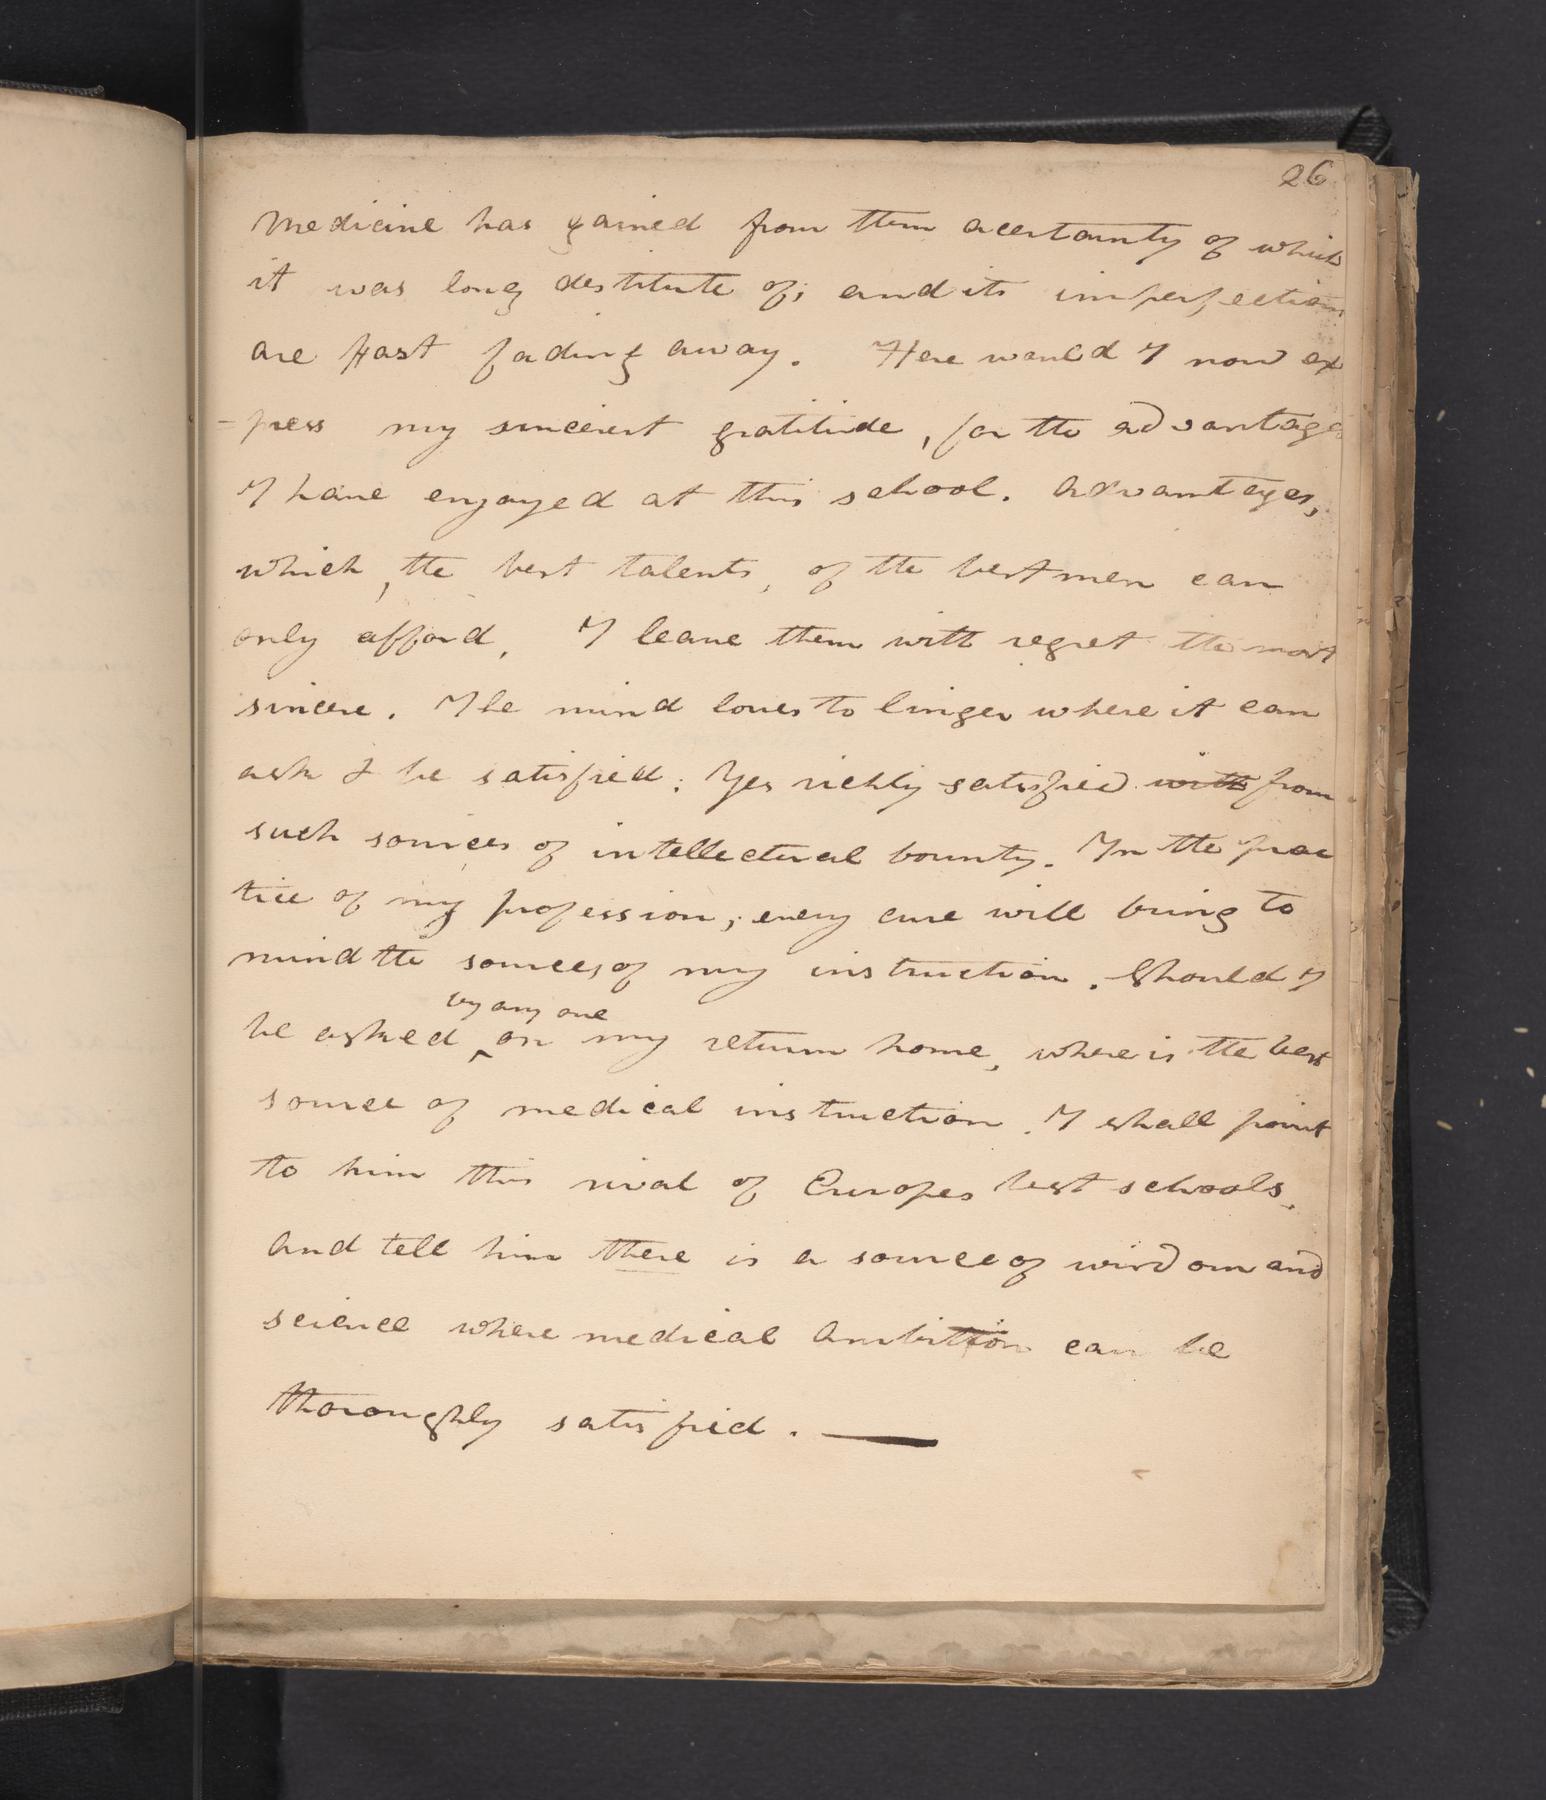 26
Medicine has gained from them acertainty of which
it was long destitute of; and its imperfections
are fast fading away. Here would I now ex
-press my sincerest gratitude, for the advantages
I have enjoyed at this school. Advantages,
which, the best talents, of the best men can
only afford. I leave them with regret the most
sincere. The mind loves to linger where it can
ask & be satisfied; Yes richly satisfied with from
such sources of intellectual bounty. In the prac
tice of my profession; every cure will bring to
mind the sources of my instruction. Should I
by any one
be asked ^ on my return home, where is the best
source of medical instruction. I shall point
to him this rival of Europes best schools,
and tell him there is a source of wisdom and
science where medical ambition can be
thoroughly satisfied. —